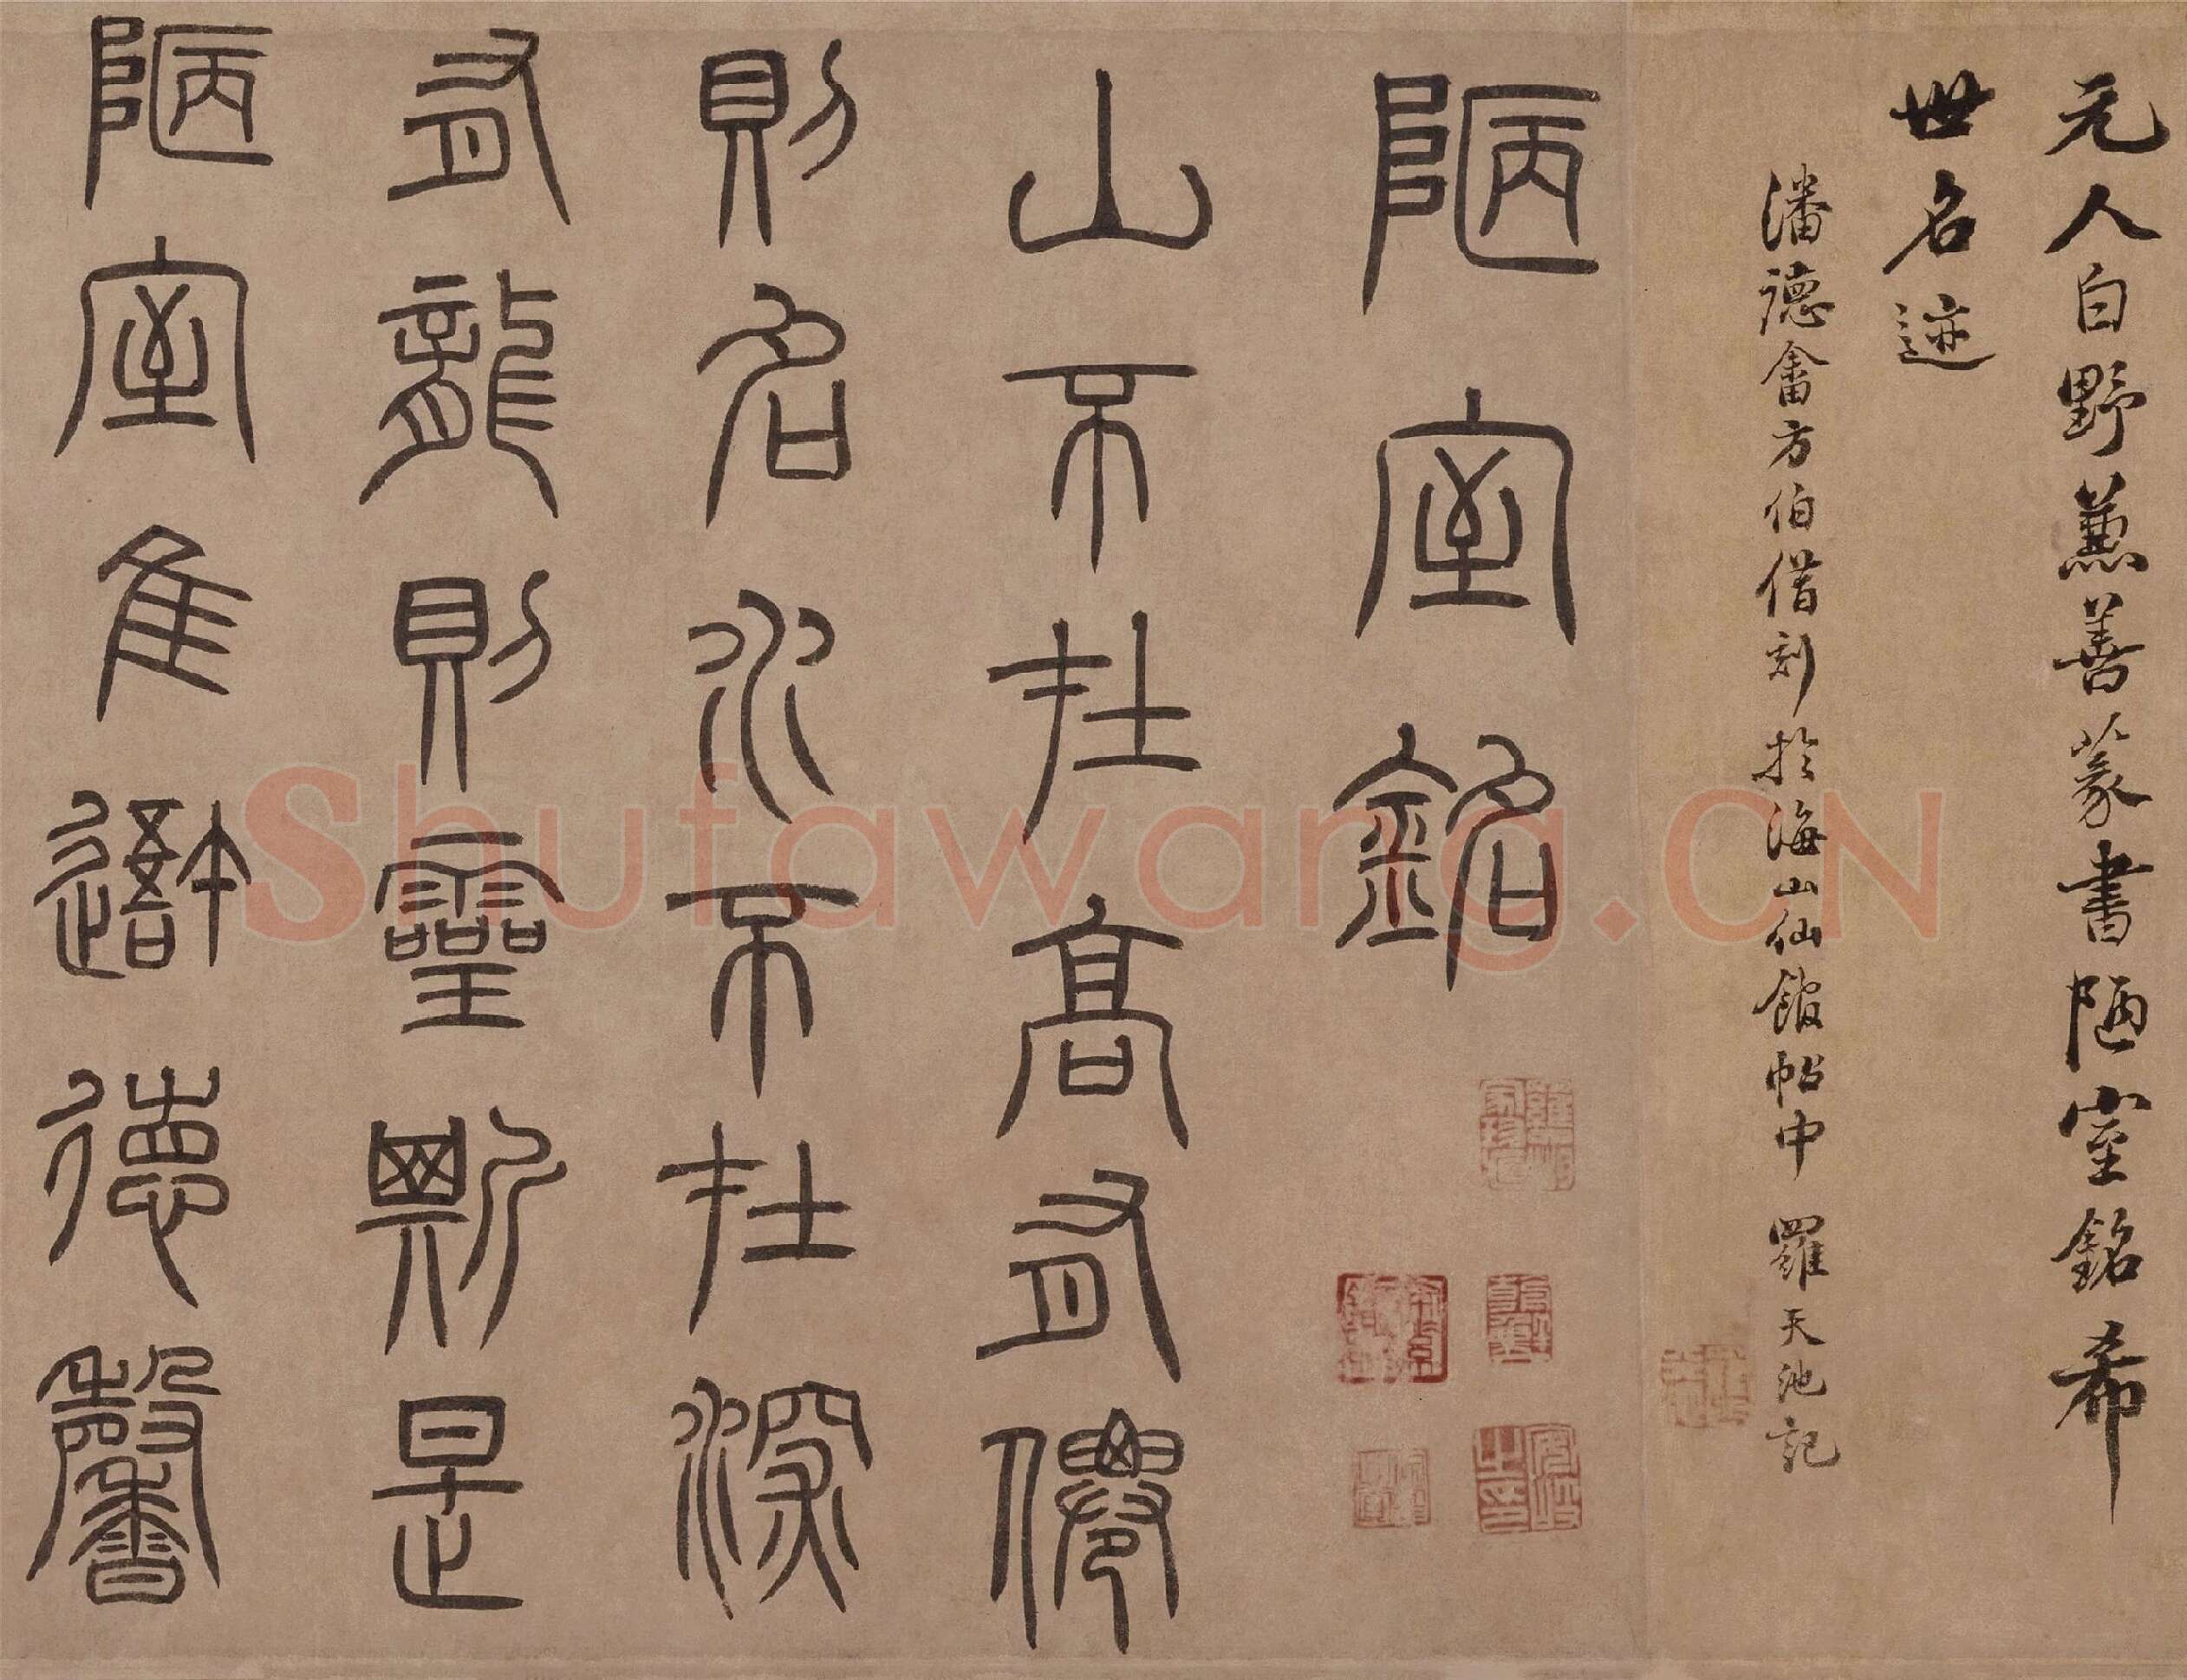 元人白野兼善篆書陋室銘希
世名迹
潘德畬方伯借刻於海山仙館帖中 羅天池記
陋室銘
山不在高有僊
則名水不在深
有龍則靈斯是
陋室隹吾德馨
Shufawang.CN